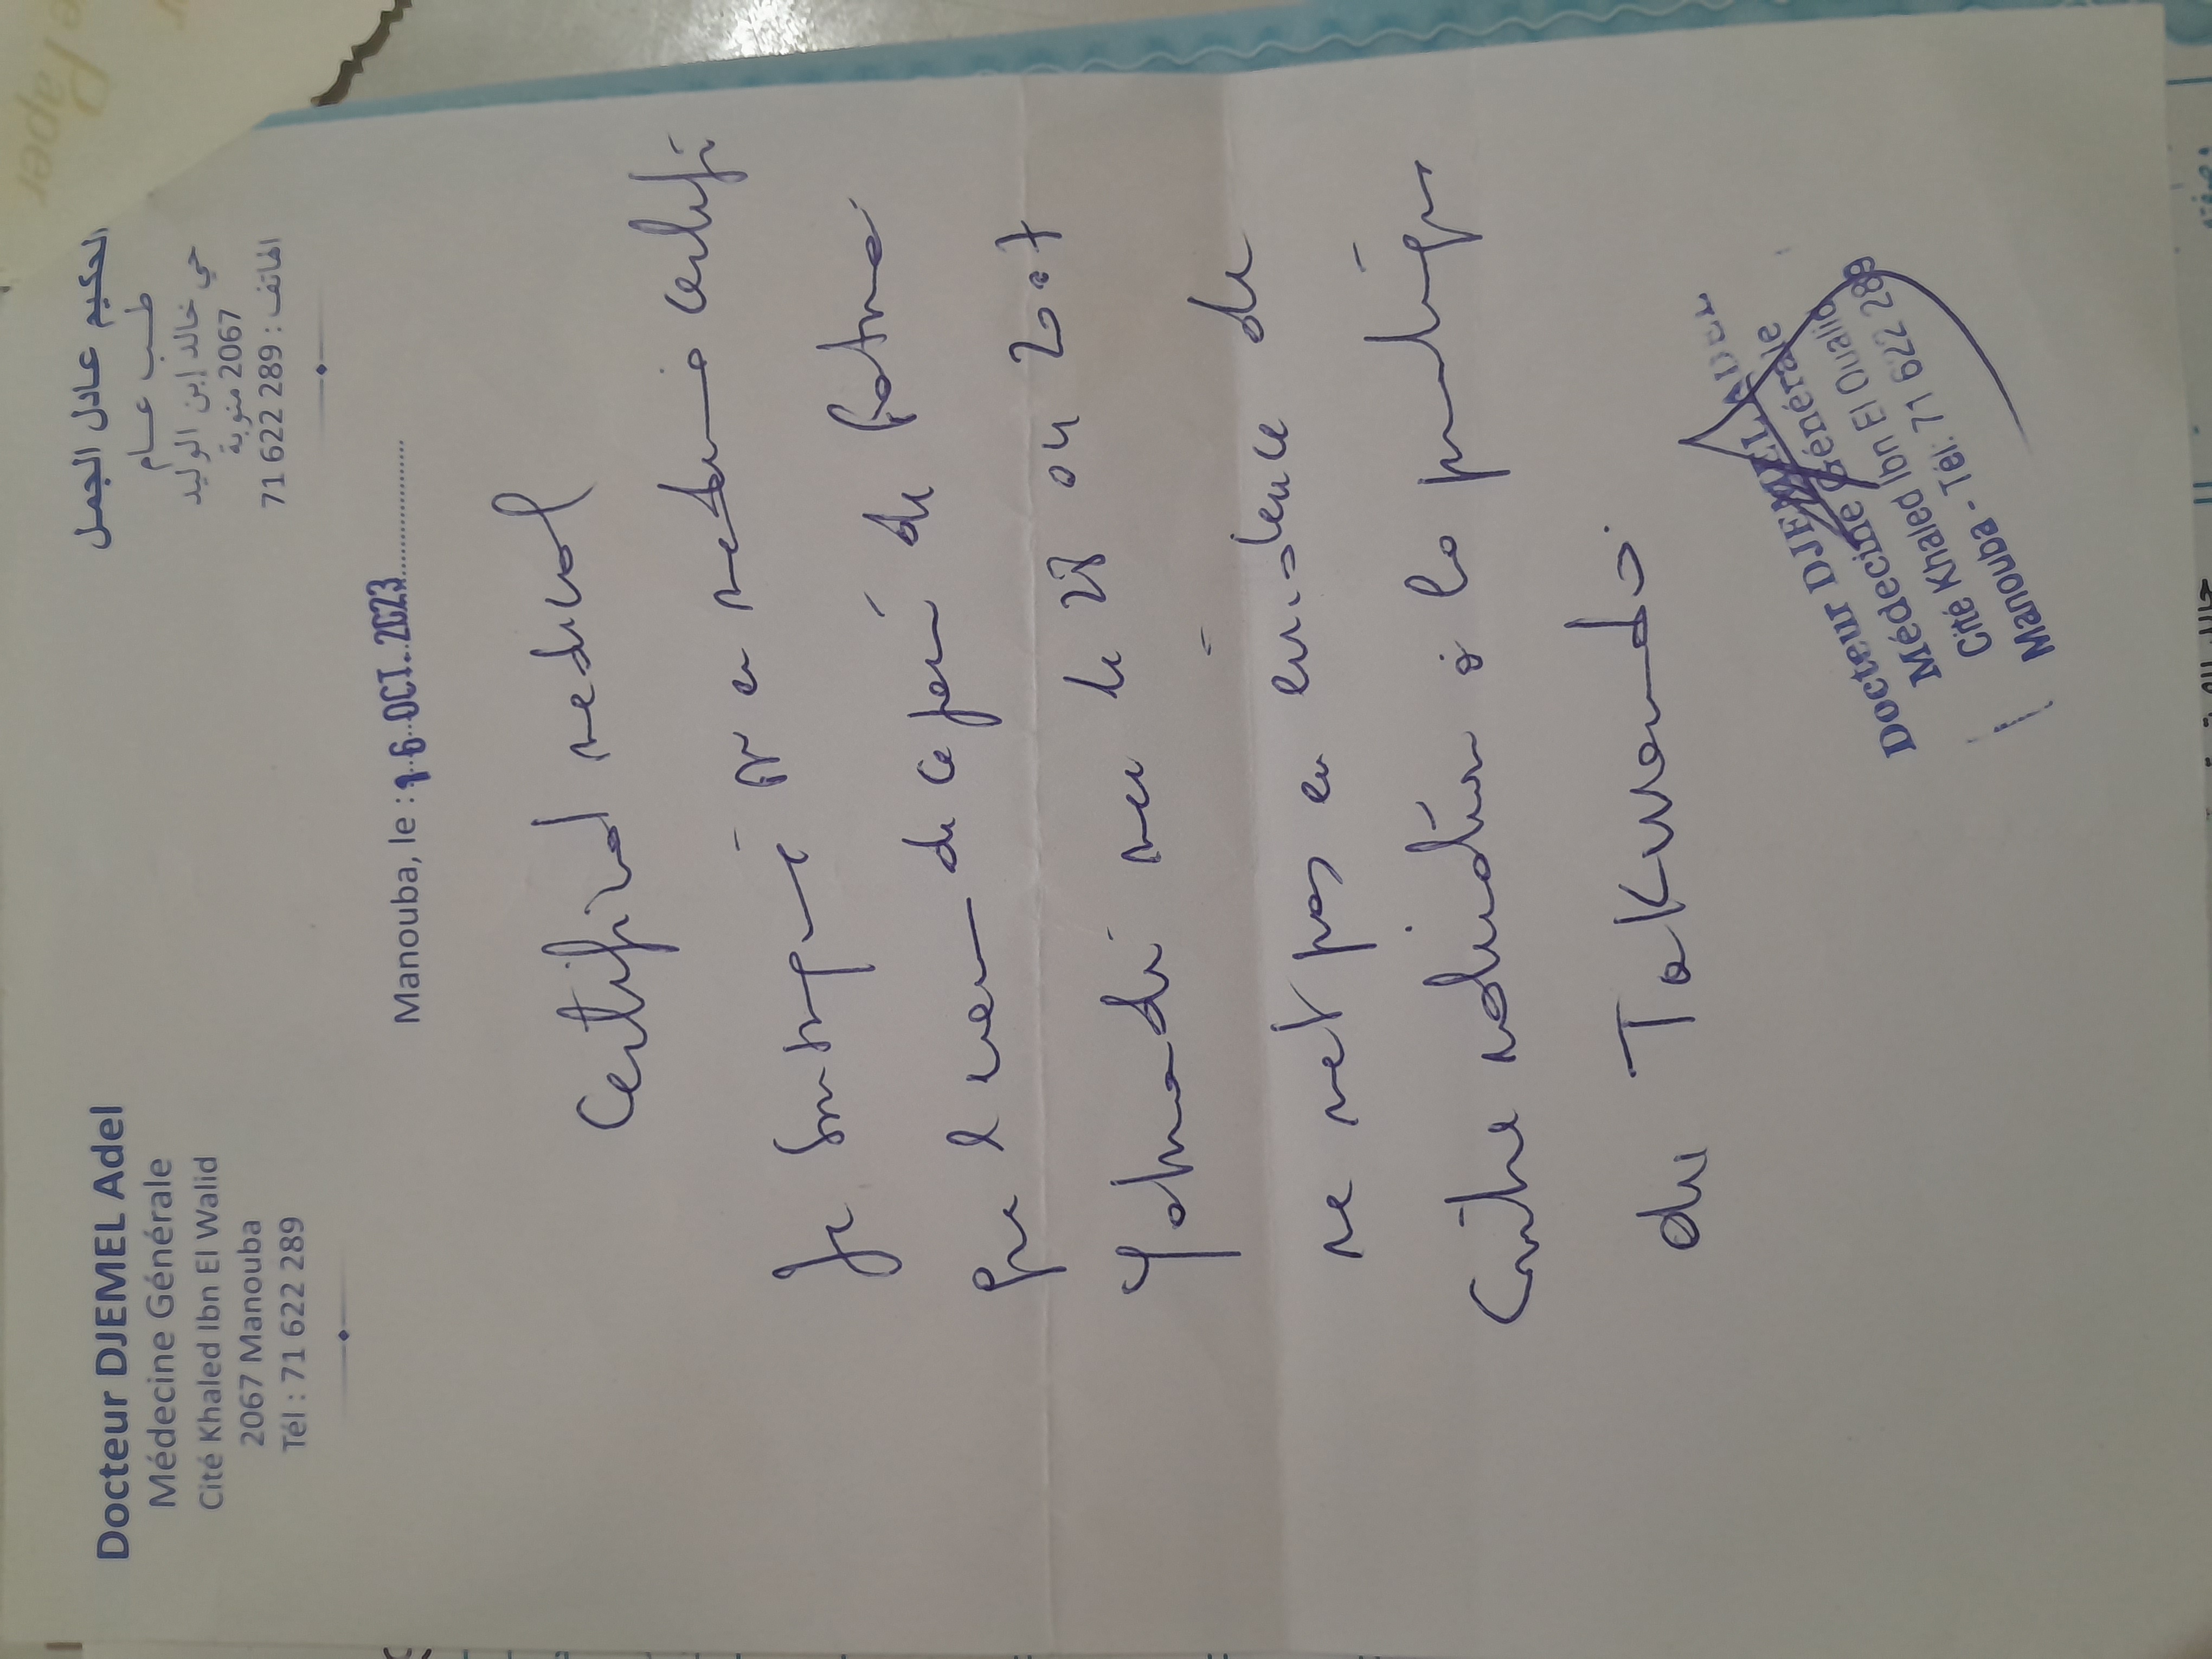 Docteur DJEMEL Adel
Médecine Générale
Cité Khaled Ibn El Walid
2067 Manouba
Tél : 71 622 289
الحكيم عادل الجمل
طب عام
حي خالد إبن الوليد
2067 منوبة
الهاتف : 289 622 71
Manouba, le : 16 OCT. 2023
Certificat medical
Je soussigné Dr en medecine certifi
que l'examen de ce jour de Fatma
née le 28 04 2007
ne met pas en evidence de
Contre indication à la pratique
du Takwando.
Docteur DJEMEL ADEL
Médecine Générale
Cité Khaled Ibn El Oualid
Manouba - Tél: 71 622 289
Paper